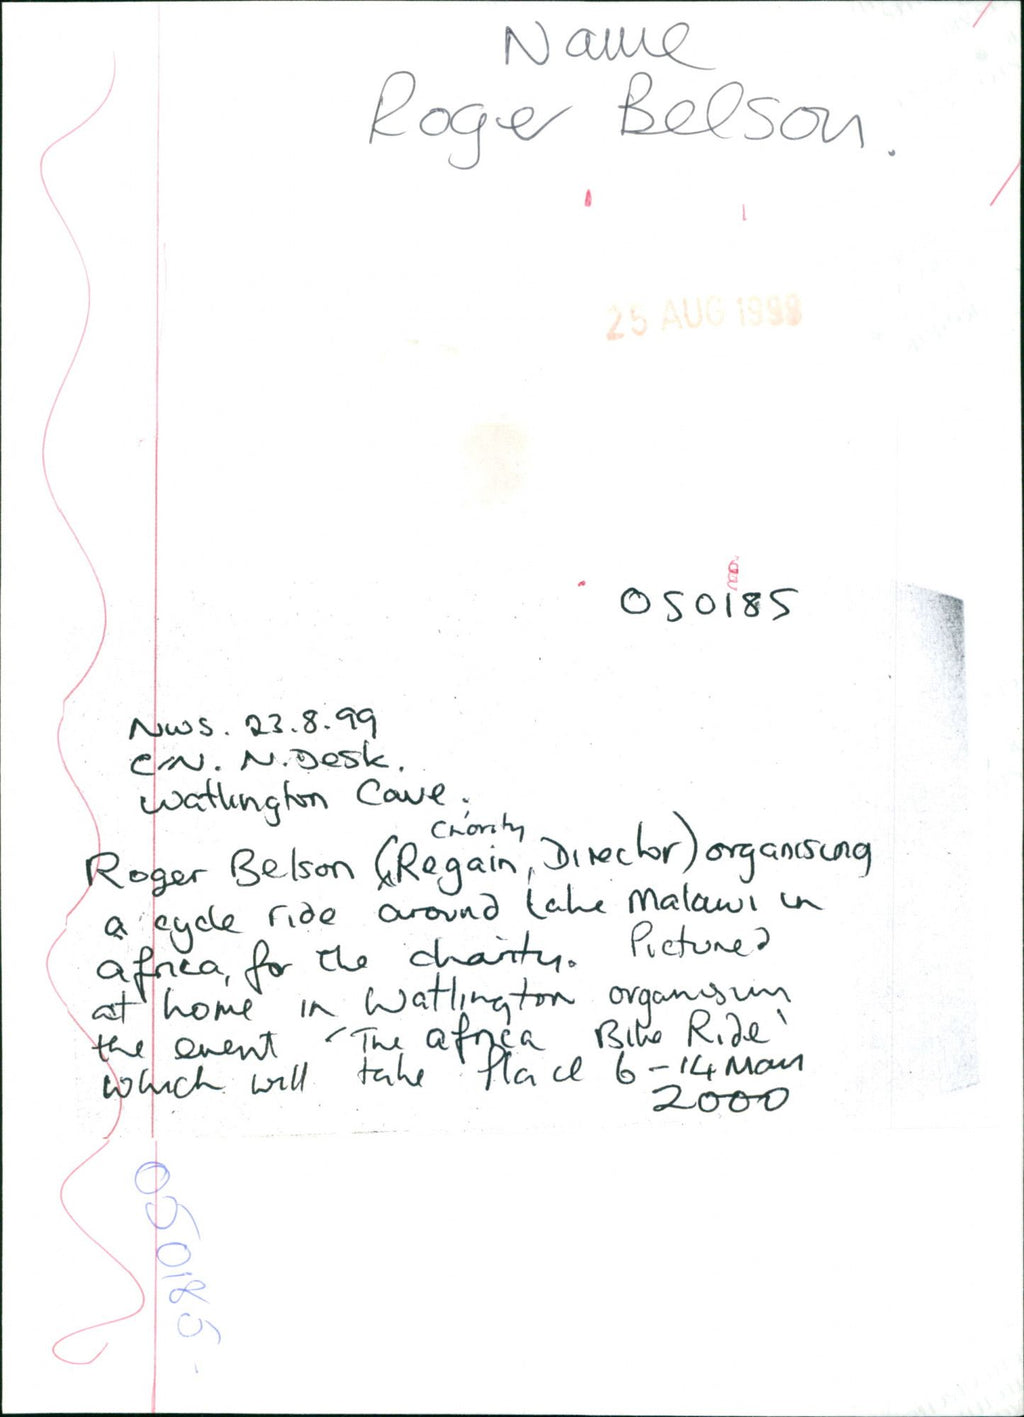 Name
Roger Belson.
25 AUG 1999
050185
NWS. 23.8.99
C/N. N.Desk.
Watlington Cove.
Charity
Roger Belson (Regain, Director) organising
a cycle ride around Lake Malawi in
africa, for the charity. Pictured
at home in Watlington organising
the event 'The africa Bike Ride'
which will take place 6-14 May
2000
050185